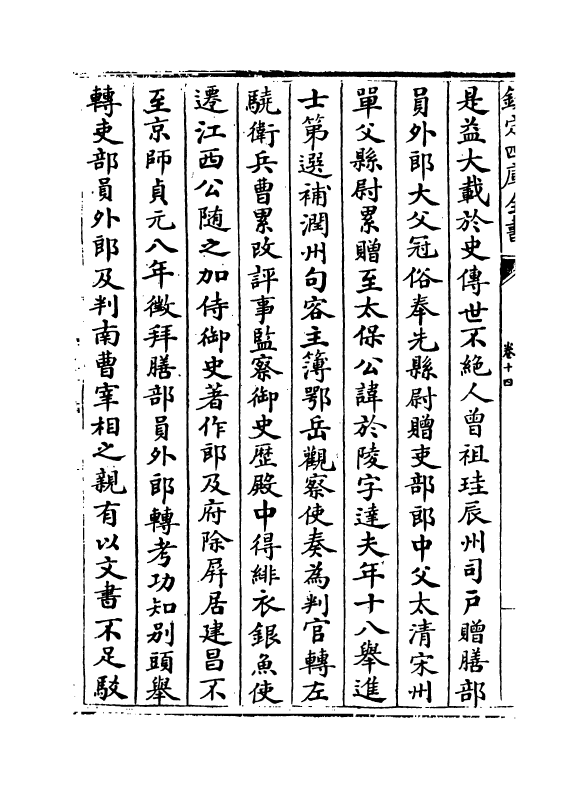 欽定四庫全書
卷十四
是益大載於史傳世不絶人曾祖珪辰州司戶贈膳部
員外郎大父冠俗奉先縣尉贈吏部郎中父太清宋州
單父縣尉累贈至太保公諱於陵字達夫年十八舉進
士第選補潤州句容主簿鄂岳觀察使奏為判官轉左
驍衛兵曹累改評事監察御史歴殿中得緋衣銀魚使
遷江西公随之加侍御史著作郎及府除屏居建昌不
至京師貞元八年徵拜膳部員外郎轉考功知别頭舉
轉吏部員外郎及判南曹宰相之親有以文書不足駮